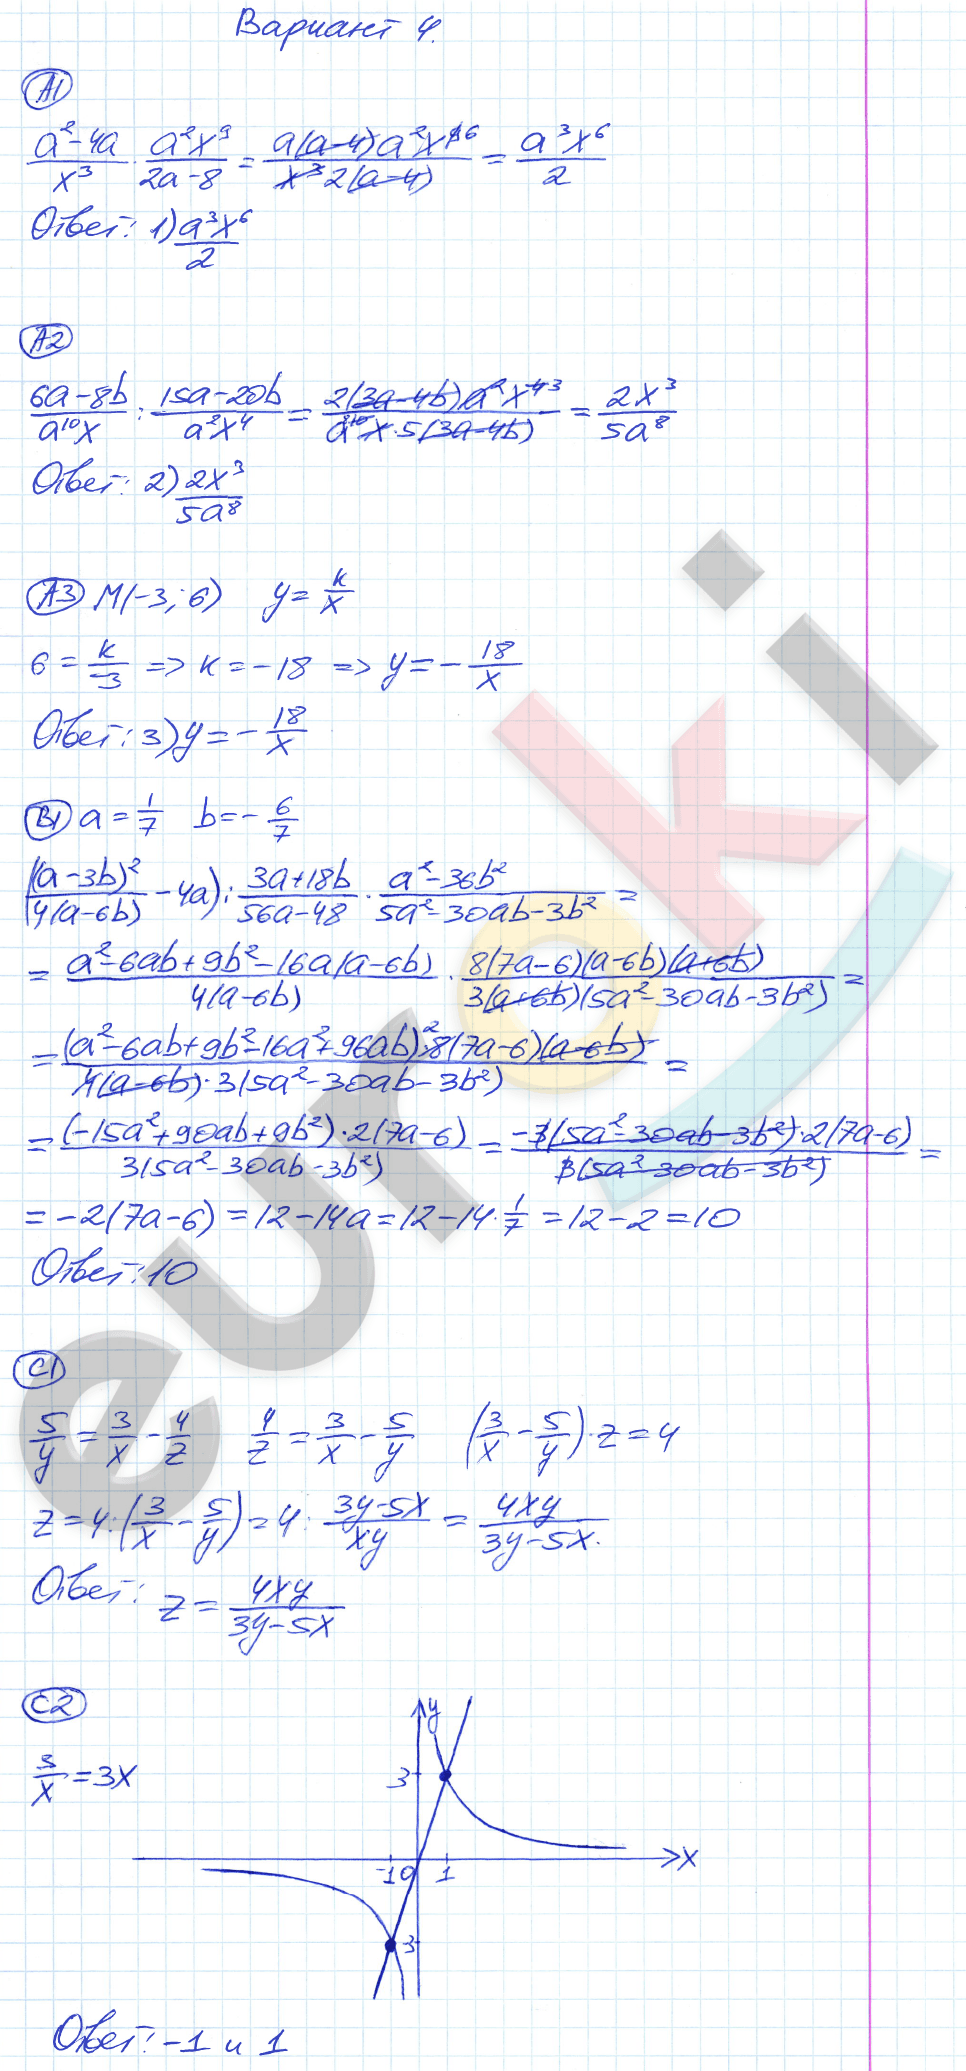 Вариант 4.
А1
(a²-4a)/x³ · (a²x⁹)/(2a-8) = (a(a-4)a²x⁶)/(x³2(a-4)) = (a³x⁶)/2
Ответ: 1) (a³x⁶)/2
А2
(6a-8b)/(a¹⁰x) : (15a-20b)/(a²x⁴) = (2(3a-4b)a²x⁴ ³)/(a¹⁰x·5(3a-4b)) = (2x³)/(5a⁸)
Ответ: 2) (2x³)/(5a⁸)
А3 M(-3; 6) y = k/x
6 = k/-3 => k = -18 => y = -18/x
Ответ: 3) y = -18/x
В1 a = 1/7 b = -6/7
((a-3b)²/(4(a-6b)) - 4a) : (3a+18b)/(56a-48) · (a²-36b²)/(5a²-30ab-3b²) =
= (a²-6ab+9b²-16a(a-6b))/(4(a-6b)) · (8(7a-6)(a-6b)(a+6b))/(3(a+6b)(5a²-30ab-3b²)) =
= ((a²-6ab+9b²-16a²+96ab)·²8(7a-6)(a-6b))/(4(a-6b)·3(5a²-30ab-3b²)) =
= ((-15a²+90ab+9b²)·2(7a-6))/(3(5a²-30ab-3b²)) = (-3(5a²-30ab-3b²)·2(7a-6))/(3(5a²-30ab-3b²)) =
= -2(7a-6) = 12-14a = 12-14·1/7 = 12-2 = 10
Ответ: 10
С1
5/y = 3/x - 4/z 4/z = 3/x - 5/y (3/x - 5/y)·z = 4
z = 4 : (3/x - 5/y) = 4 : (3y-5x)/(xy) = (4xy)/(3y-5x).
Ответ: z = (4xy)/(3y-5x)
С2
3/x = 3x
y
3
-1 0 1 x
3
Ответ: -1 и 1
euroki